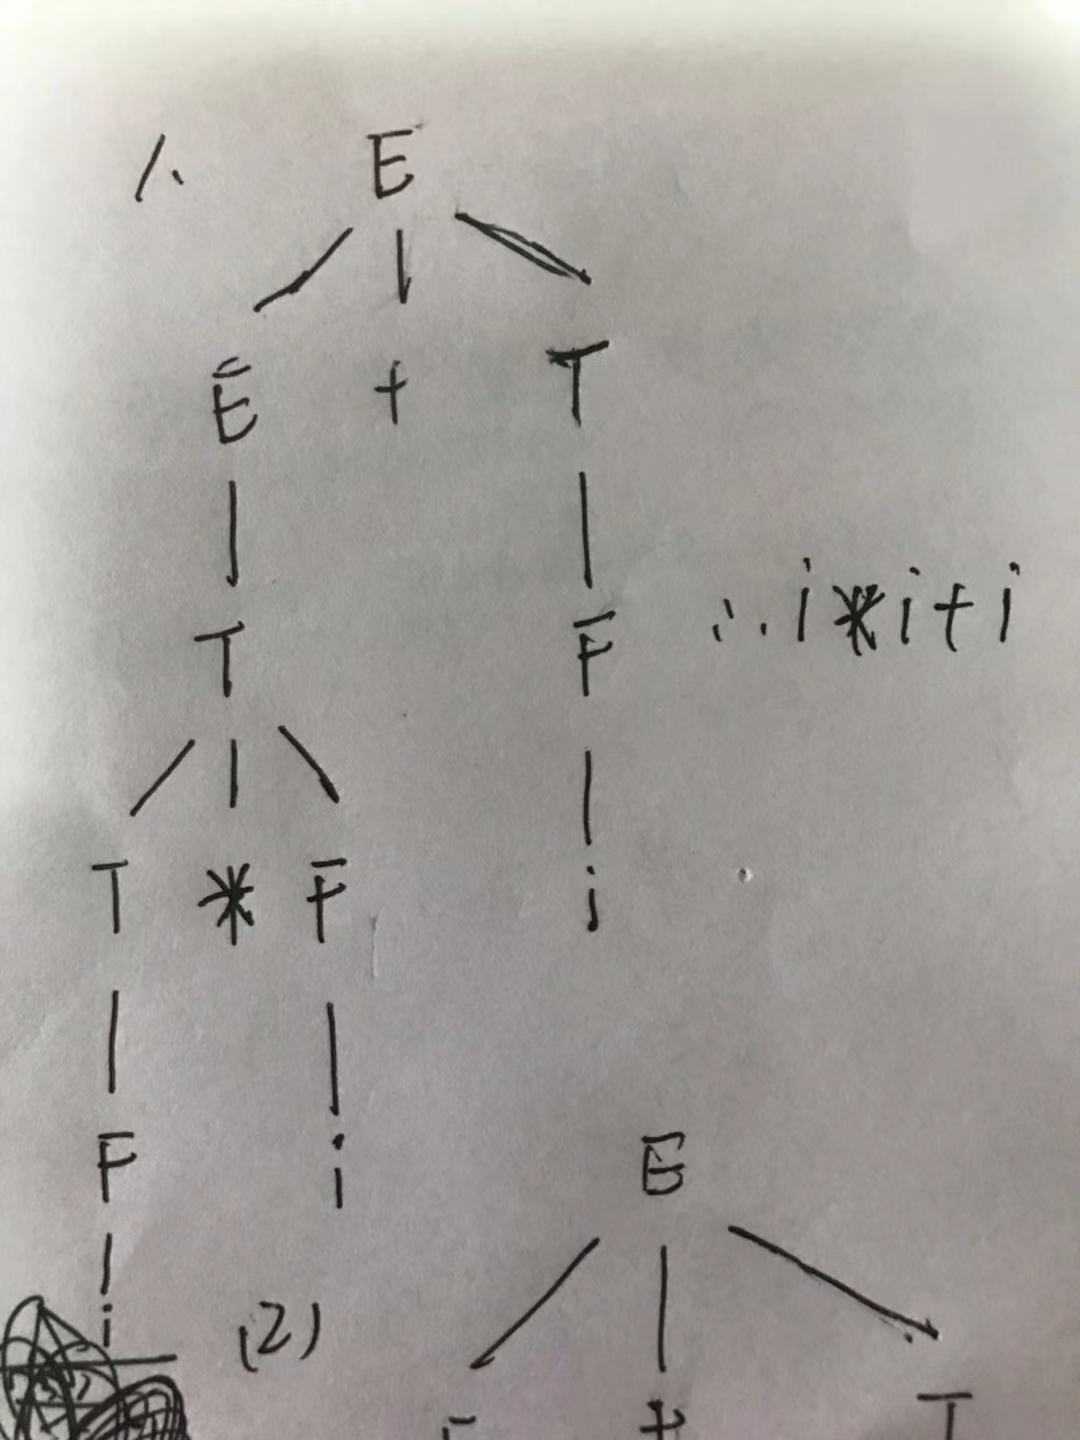 1、 E
E + T
T
F ∴ i*i+i
T * F i
F i
E
i
(2)
+ T